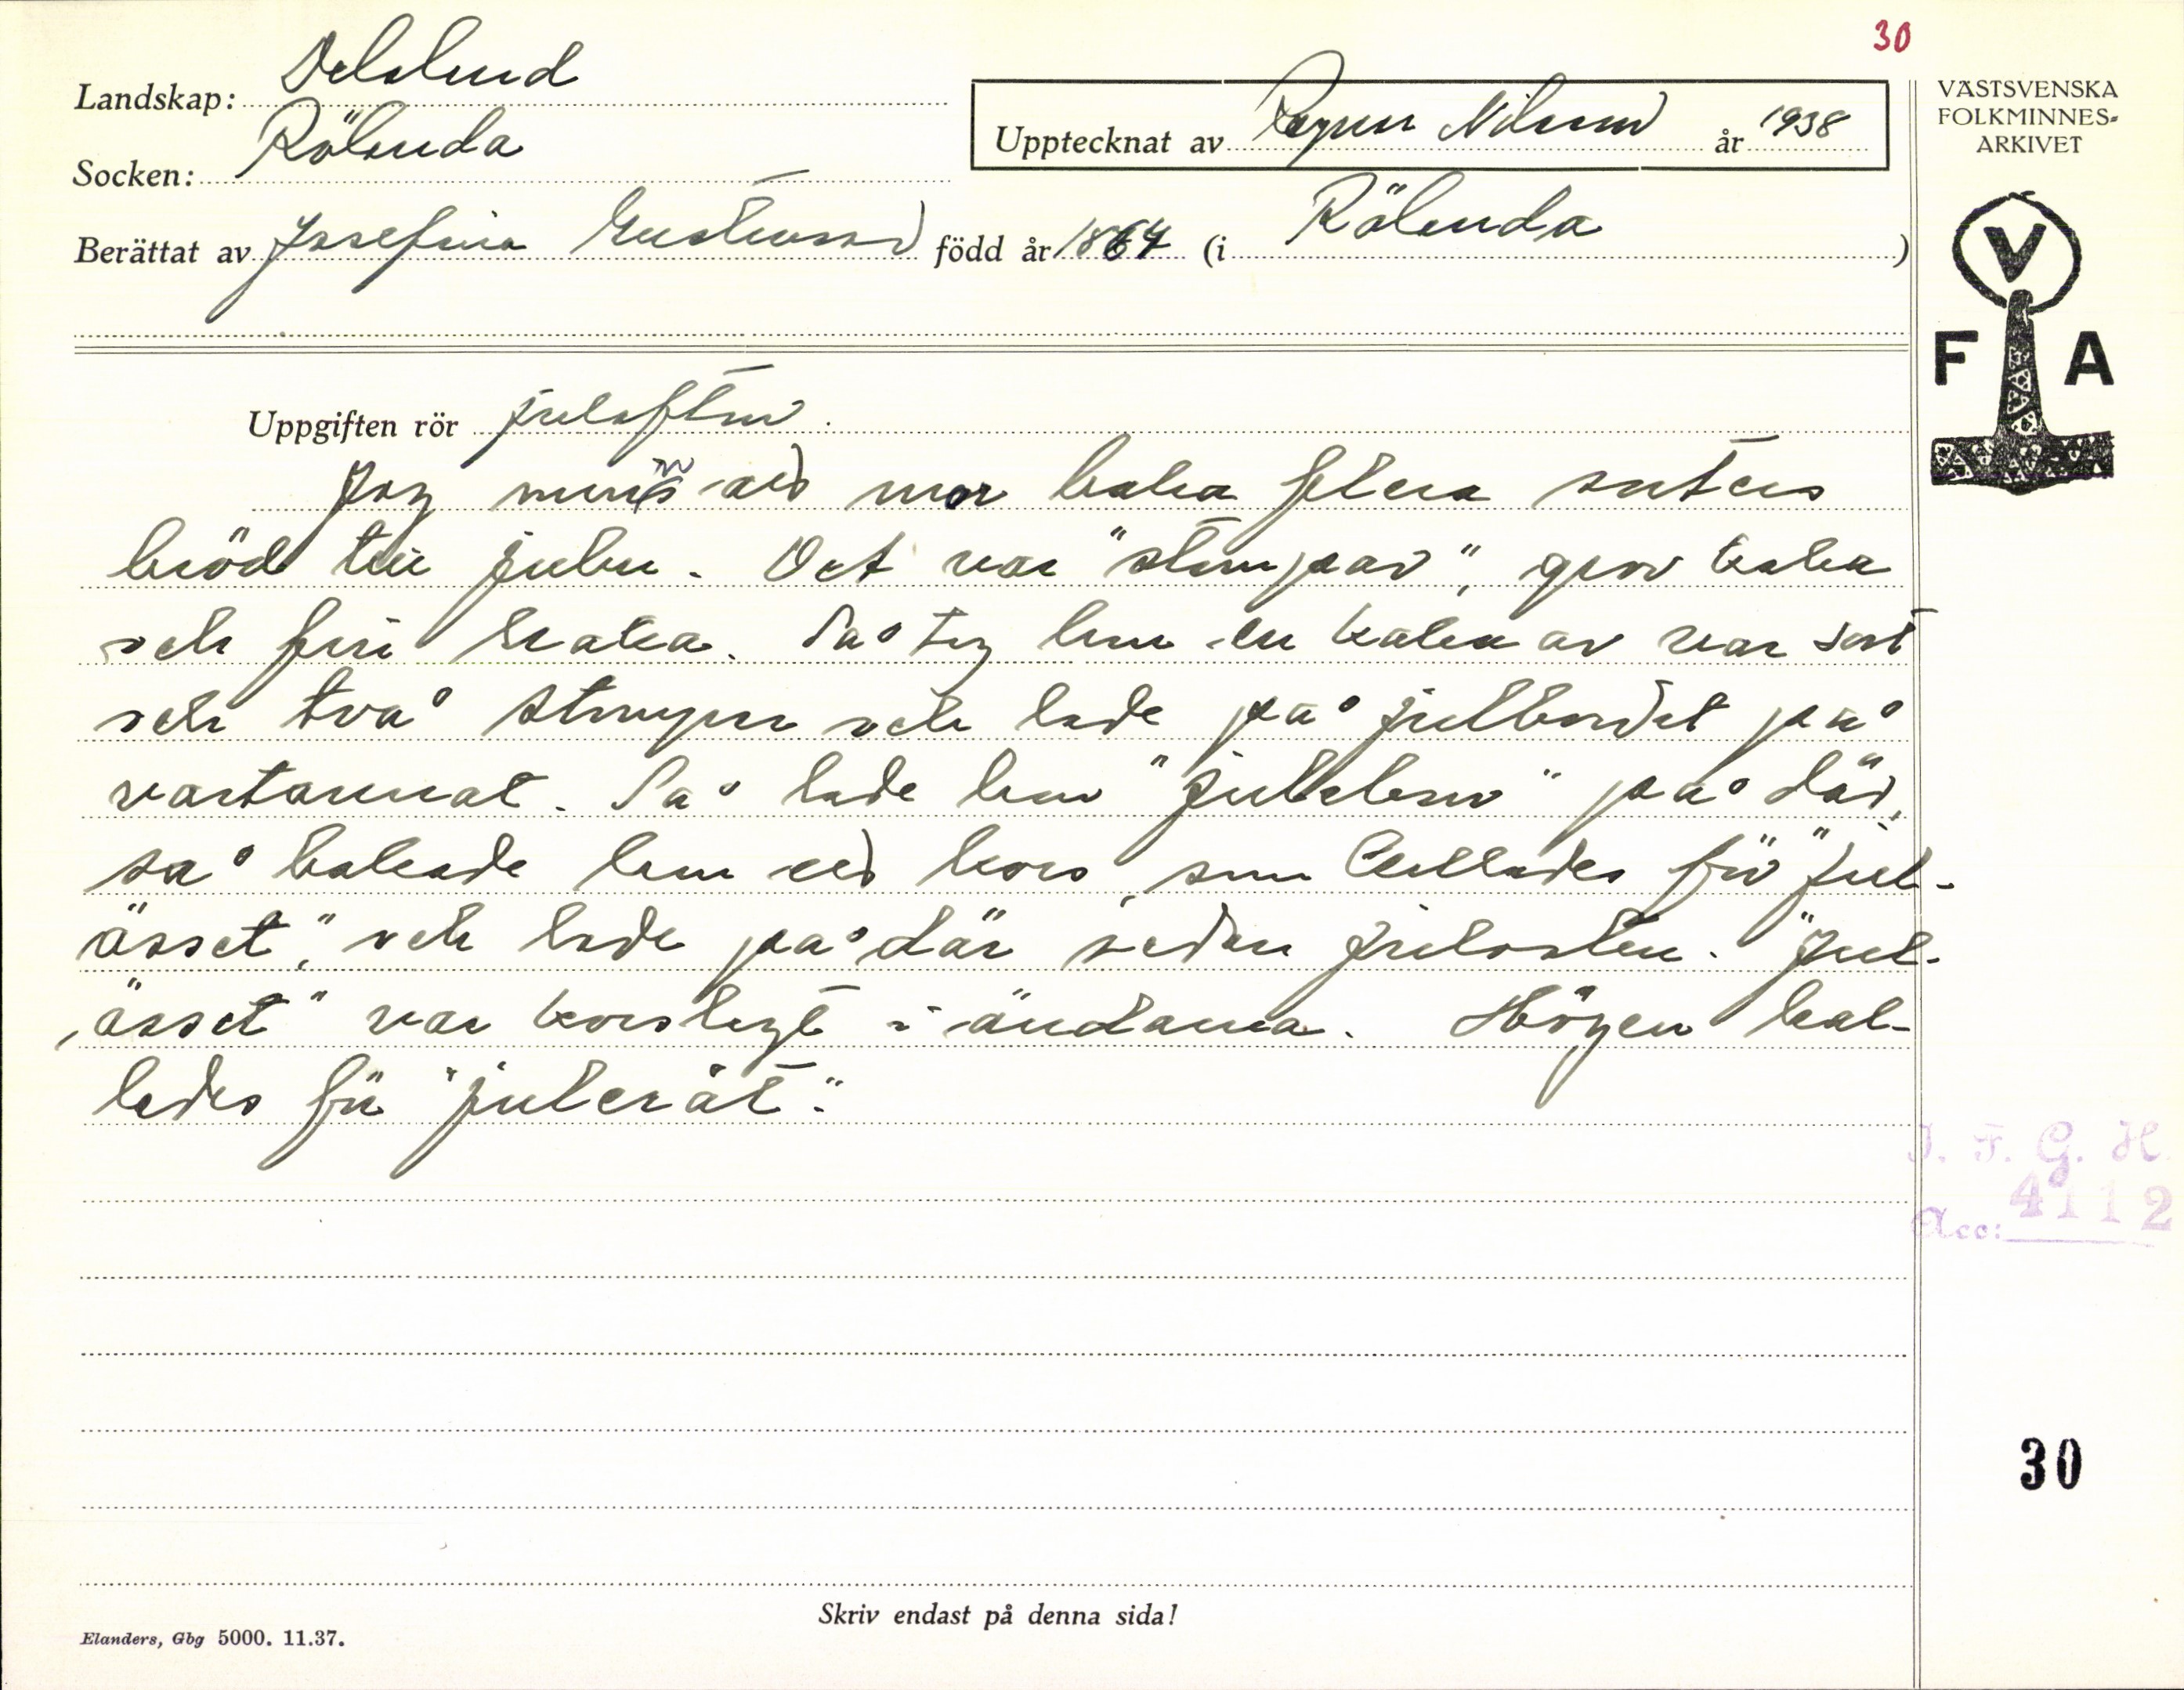 30
Landskap: Dalsland
Socken: Rölanda
Upptecknat av Ragnar Nilsson år 1938
VÄSTSVENSKA
FOLKMINNES-
ARKIVET
Berättat av Josefina Gustavsson född år 1864 (i Rölanda)
V
F A
Uppgiften rör julafton.
Jag minns när mor baka flera sorters
bröd till julen. Det var "stompar", grov kaka
och fin kaka. Så tog hon en kaka av var sort
och två stompar och lade på julbordet på
vartannat. Så lade hon " " på där,
så bakade hon ett kors, som kallades för "jul-
ässet", och lade på där sedan julosten. "Jul-
ässet" var korslagt i ändarna. Högen kal-
lades för "juleråt".
I. F. G. H.
Acc: 4112
30
Skriv endast på denna sida!
Elanders, Gbg 5000. 11.37.